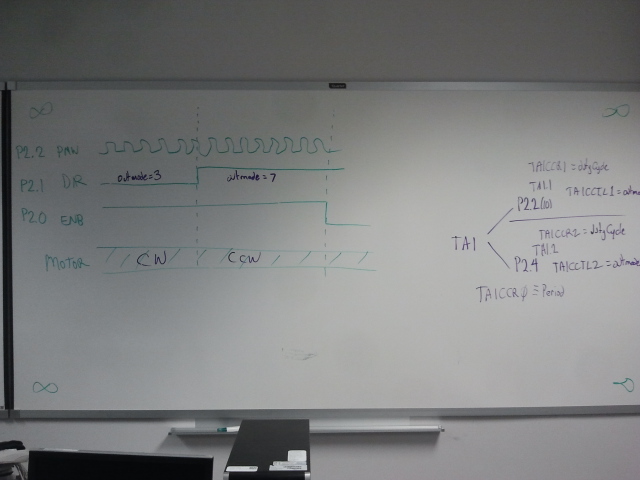 ∞ ∞
P2.2 PWM
P2.1 DIR outmode=3 outmode=7
P2.0 ENB
MOTOR CW CCW
TA1CCR1 = dutyCycle
TA1.1 TA1CCTL1 = outmo
P2.2(10)
TA1
TA1CCR2 = dutyCycle
TA1.2
P2.4 TA1CCTL2 = outmode
TA1CCRφ = Period
∞